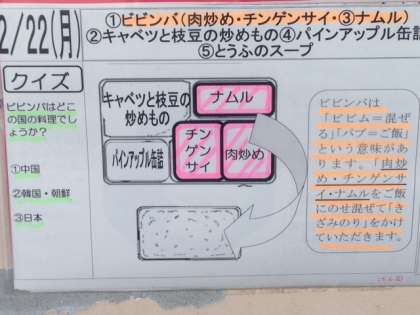 2/22(月)
①ビビンバ(肉炒め・チンゲンサイ・③ナムル)
②キャベツと枝豆の炒めもの④パインアップル缶詰
⑤とうふのスープ
クイズ
ビビンバはどこ
の国の料理でし
ょうか?
①中国
②韓国・朝鮮
③日本
キャベツと枝豆の
炒めもの
ナムル
パインアップル缶詰
チン
ゲン
サイ
肉炒め
ビビンバは
「ビビム＝混ぜ
る」「パプ＝ご飯」
という意味があ
ります。「肉炒
め・チンゲンサ
イ・ナムルをご飯
にのせ混ぜて「き
ざみのり」をかけ
ていただきます。